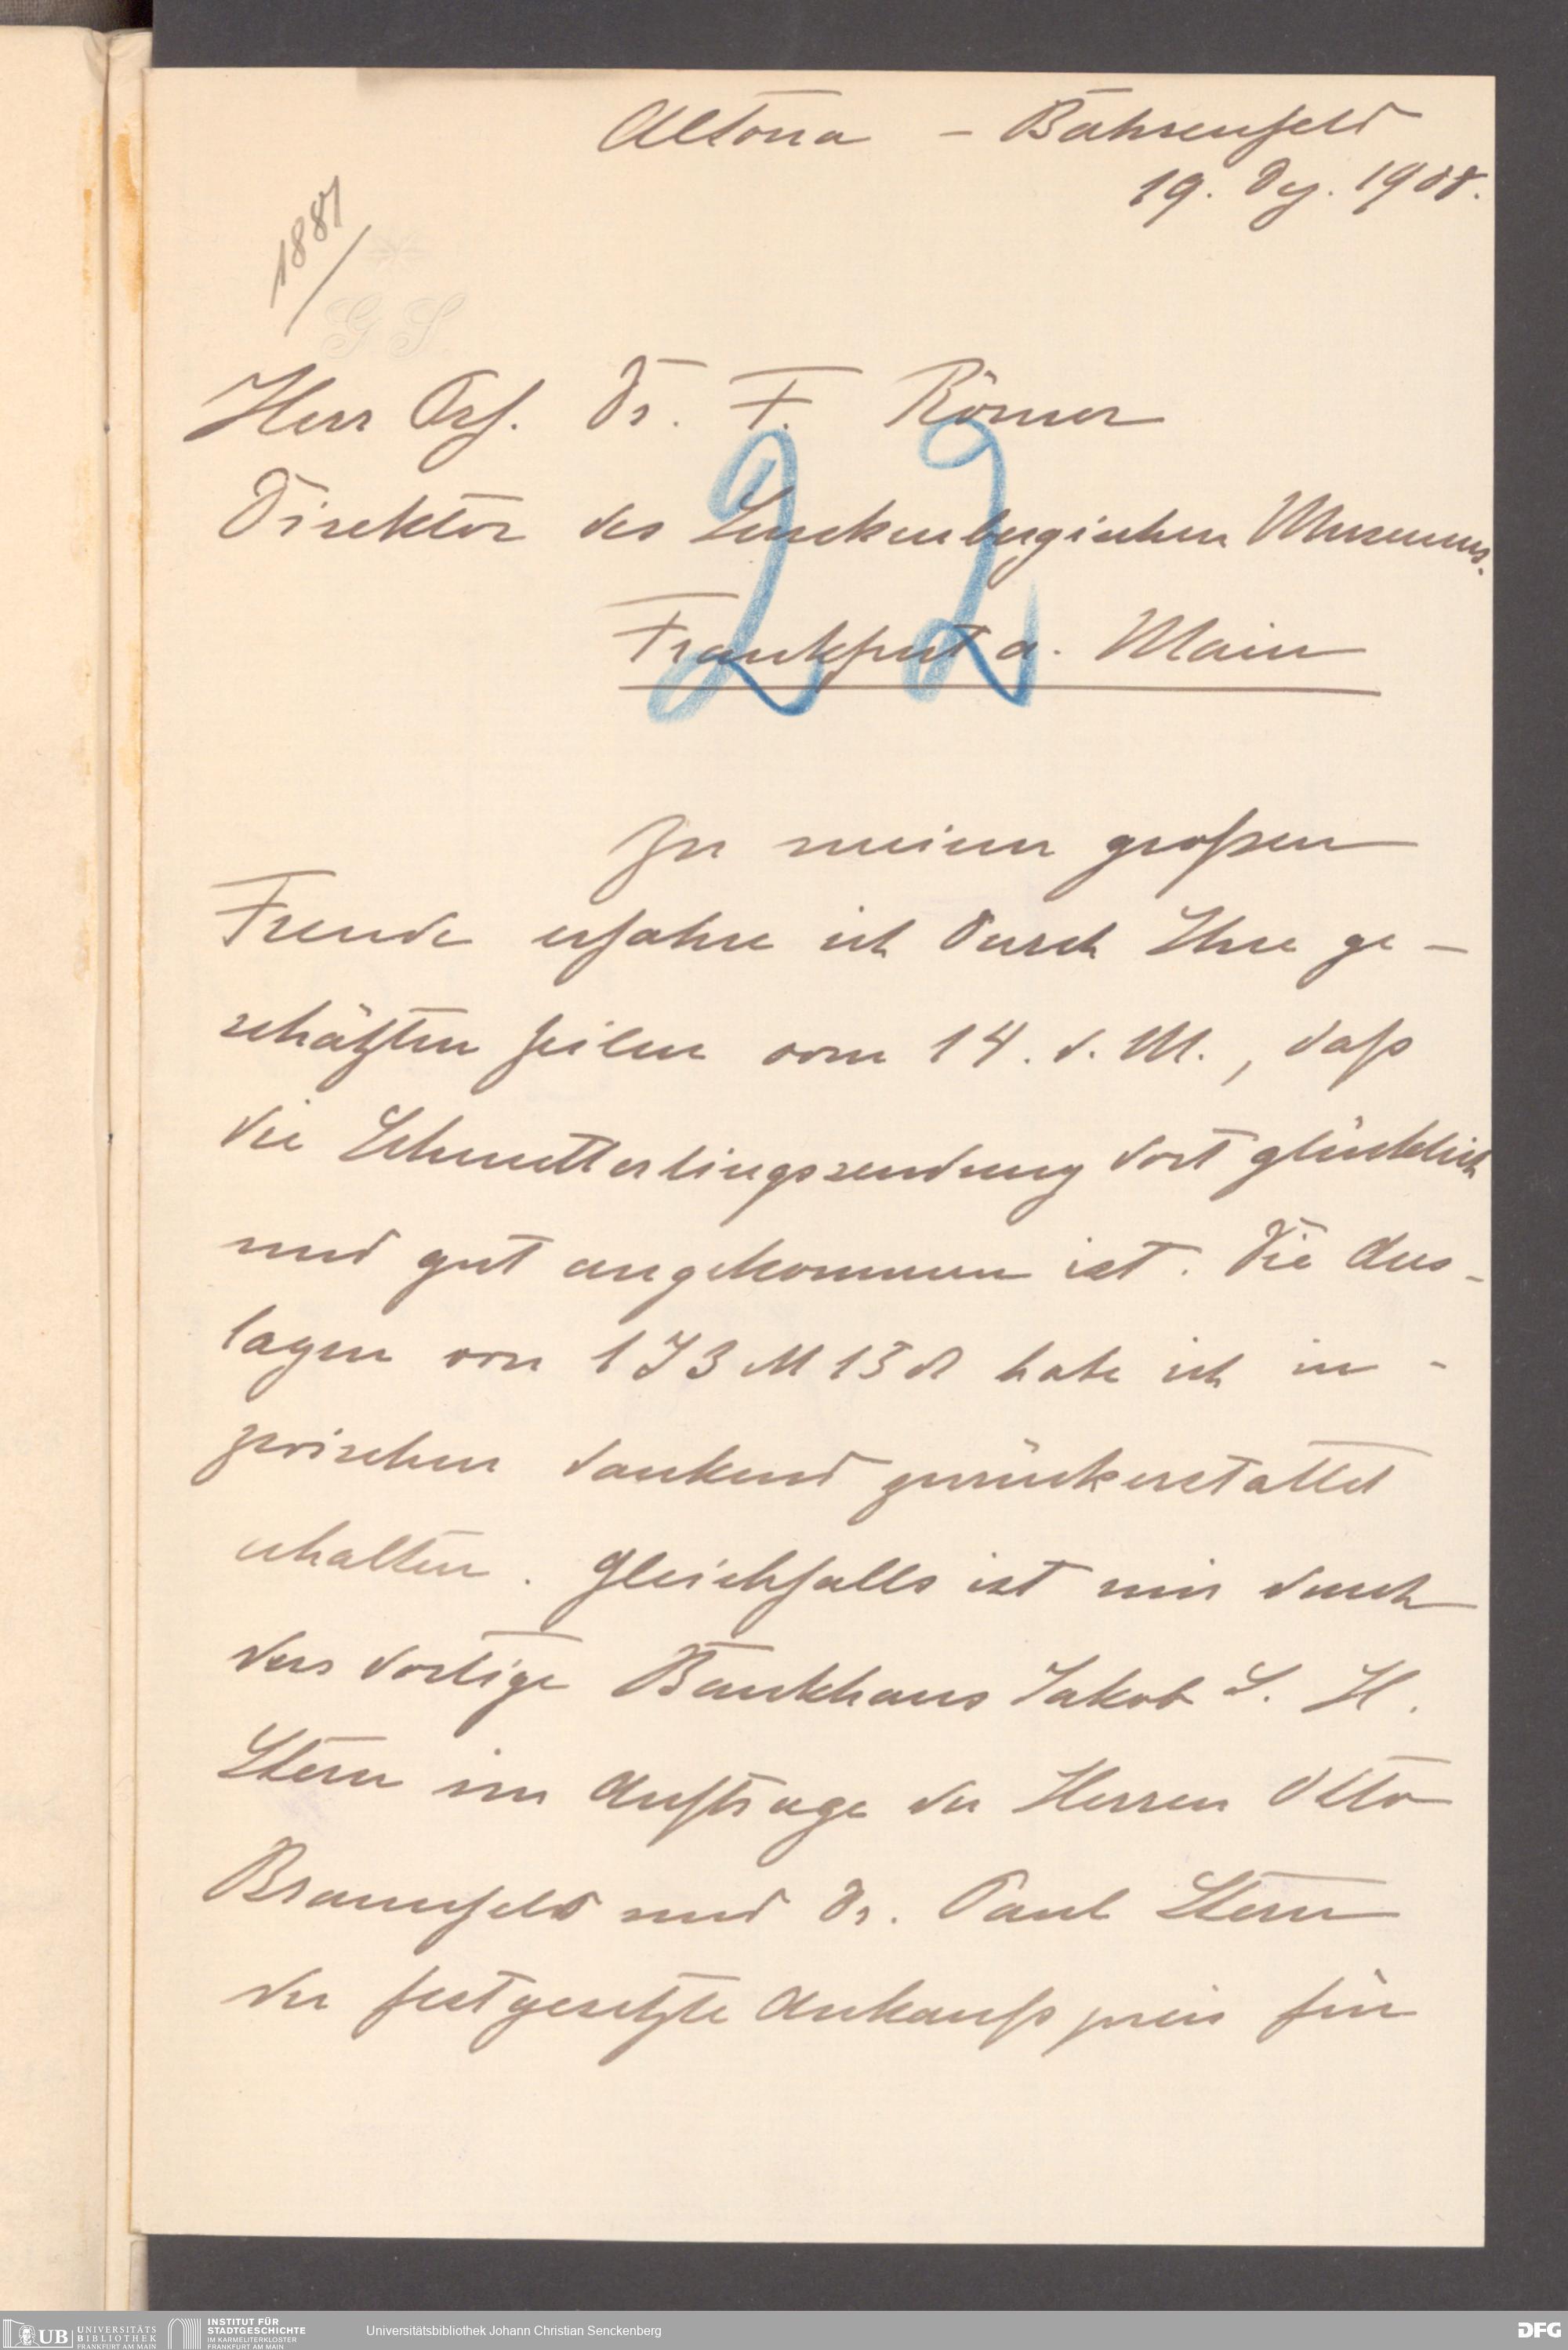 Altona – Bahrenfeld
19. Dez. 1908.
1887
G S
Herr Prf. Dr. F. Römer
Direktor des Senckenbergischen Museums.
Frankfurt a. Main
22
Zu meiner großen
Freude erfahre ich durch Ihre ge-
schätzten Zeilen vom 14. d. M., daß
die Schmetterlingssendung dort glücklich
und gut angekommen ist. Die Aus-
lagen von 173 M 15 ₰ habe ich in-
zwischen dankend zurückerstattet
erhalten. Gleichfalls ist mir durch
das dortige Bankhaus Jakob S. H.
Stern im Auftrage der Herren Otto
Braunfels und Dr. Paul Stern
der festgesetzte Ankaufspreis für
UB UNIVERSITÄTS BIBLIOTHEK FRANKFURT AM MAIN
INSTITUT FÜR STADTGESCHICHTE IM KARMELITERKLOSTER FRANKFURT AM MAIN
Universitätsbibliothek Johann Christian Senckenberg
DFG